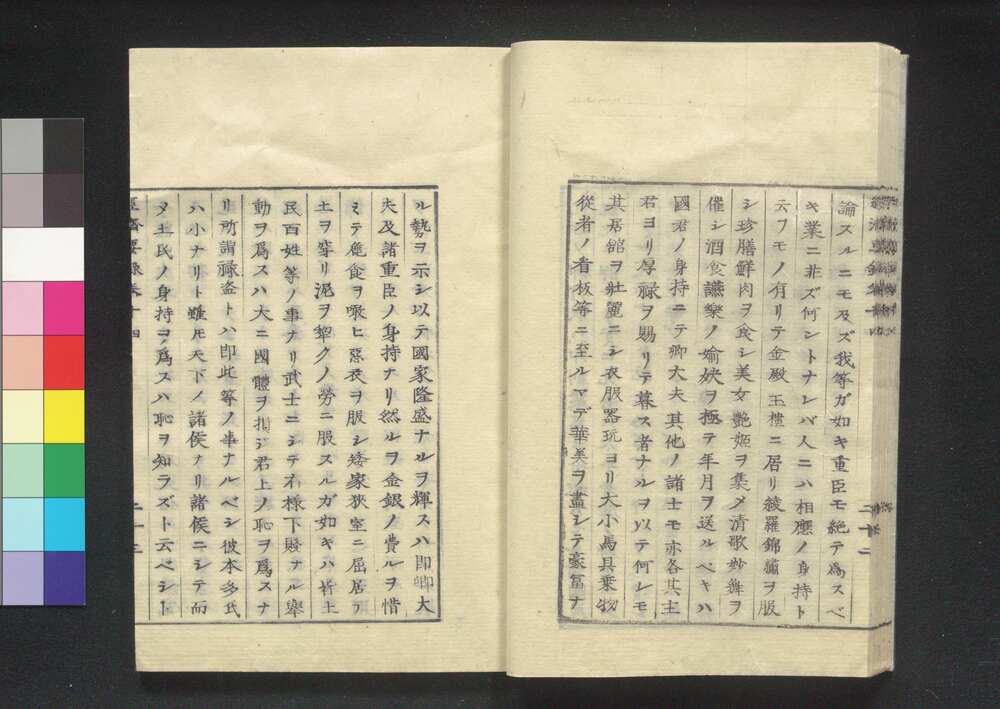 論スルニモ及ズ我等ガ如キ重臣モ絶テ爲スベ
キ業ニ非ズ何ントナレバ人ニハ相應ノ身持ト
云フモノ有リテ金殿玉樓ニ居リ綾羅錦繡ヲ服
シ珍膳鮮肉ヲ食シ美女艷姬ヲ集メ清歌妙舞ヲ
催シ酒食讌樂ノ愉快ヲ極テ年月ヲ送ルベキハ
國君ノ身持ニテ卿大夫其他ノ諸士モ亦各其主
君ヨリ厚祿ヲ賜リテ暮ス者ナルヲ以テ何レモ
其居館ヲ壯麗ニシ衣服器玩ヨリ大小馬具乗物
從者ノ看板等ニ至ルマデ華美ヲ盡シテ豪富ナ
ル勢ヲ示シ以テ國家隆盛ナルヲ輝スハ即卿大
夫及諸重臣ノ身持ナリ然ルヲ金銀ノ費ルヲ惜
ミテ麁食ヲ喰ヒ惡衣ヲ服シ矮家狹室ニ屈居テ
土ヲ穿リ泥ヲ犂クノ勞ニ服スルガ如キハ皆土
民百姓等ノ事ナリ武士ニシテ右樣下賤ナル擧
動ヲ爲スハ大ニ國體ヲ損ジ君上ノ恥ヲ爲スナ
リ所謂祿盗トハ即此等ノ事ナルベシ彼本多氏
ハ小ナリト雖モ天下ノ諸侯ナリ諸侯ニシテ而
メ土民ノ身持ヲ爲スハ恥ヲ知ラズト云ベシト